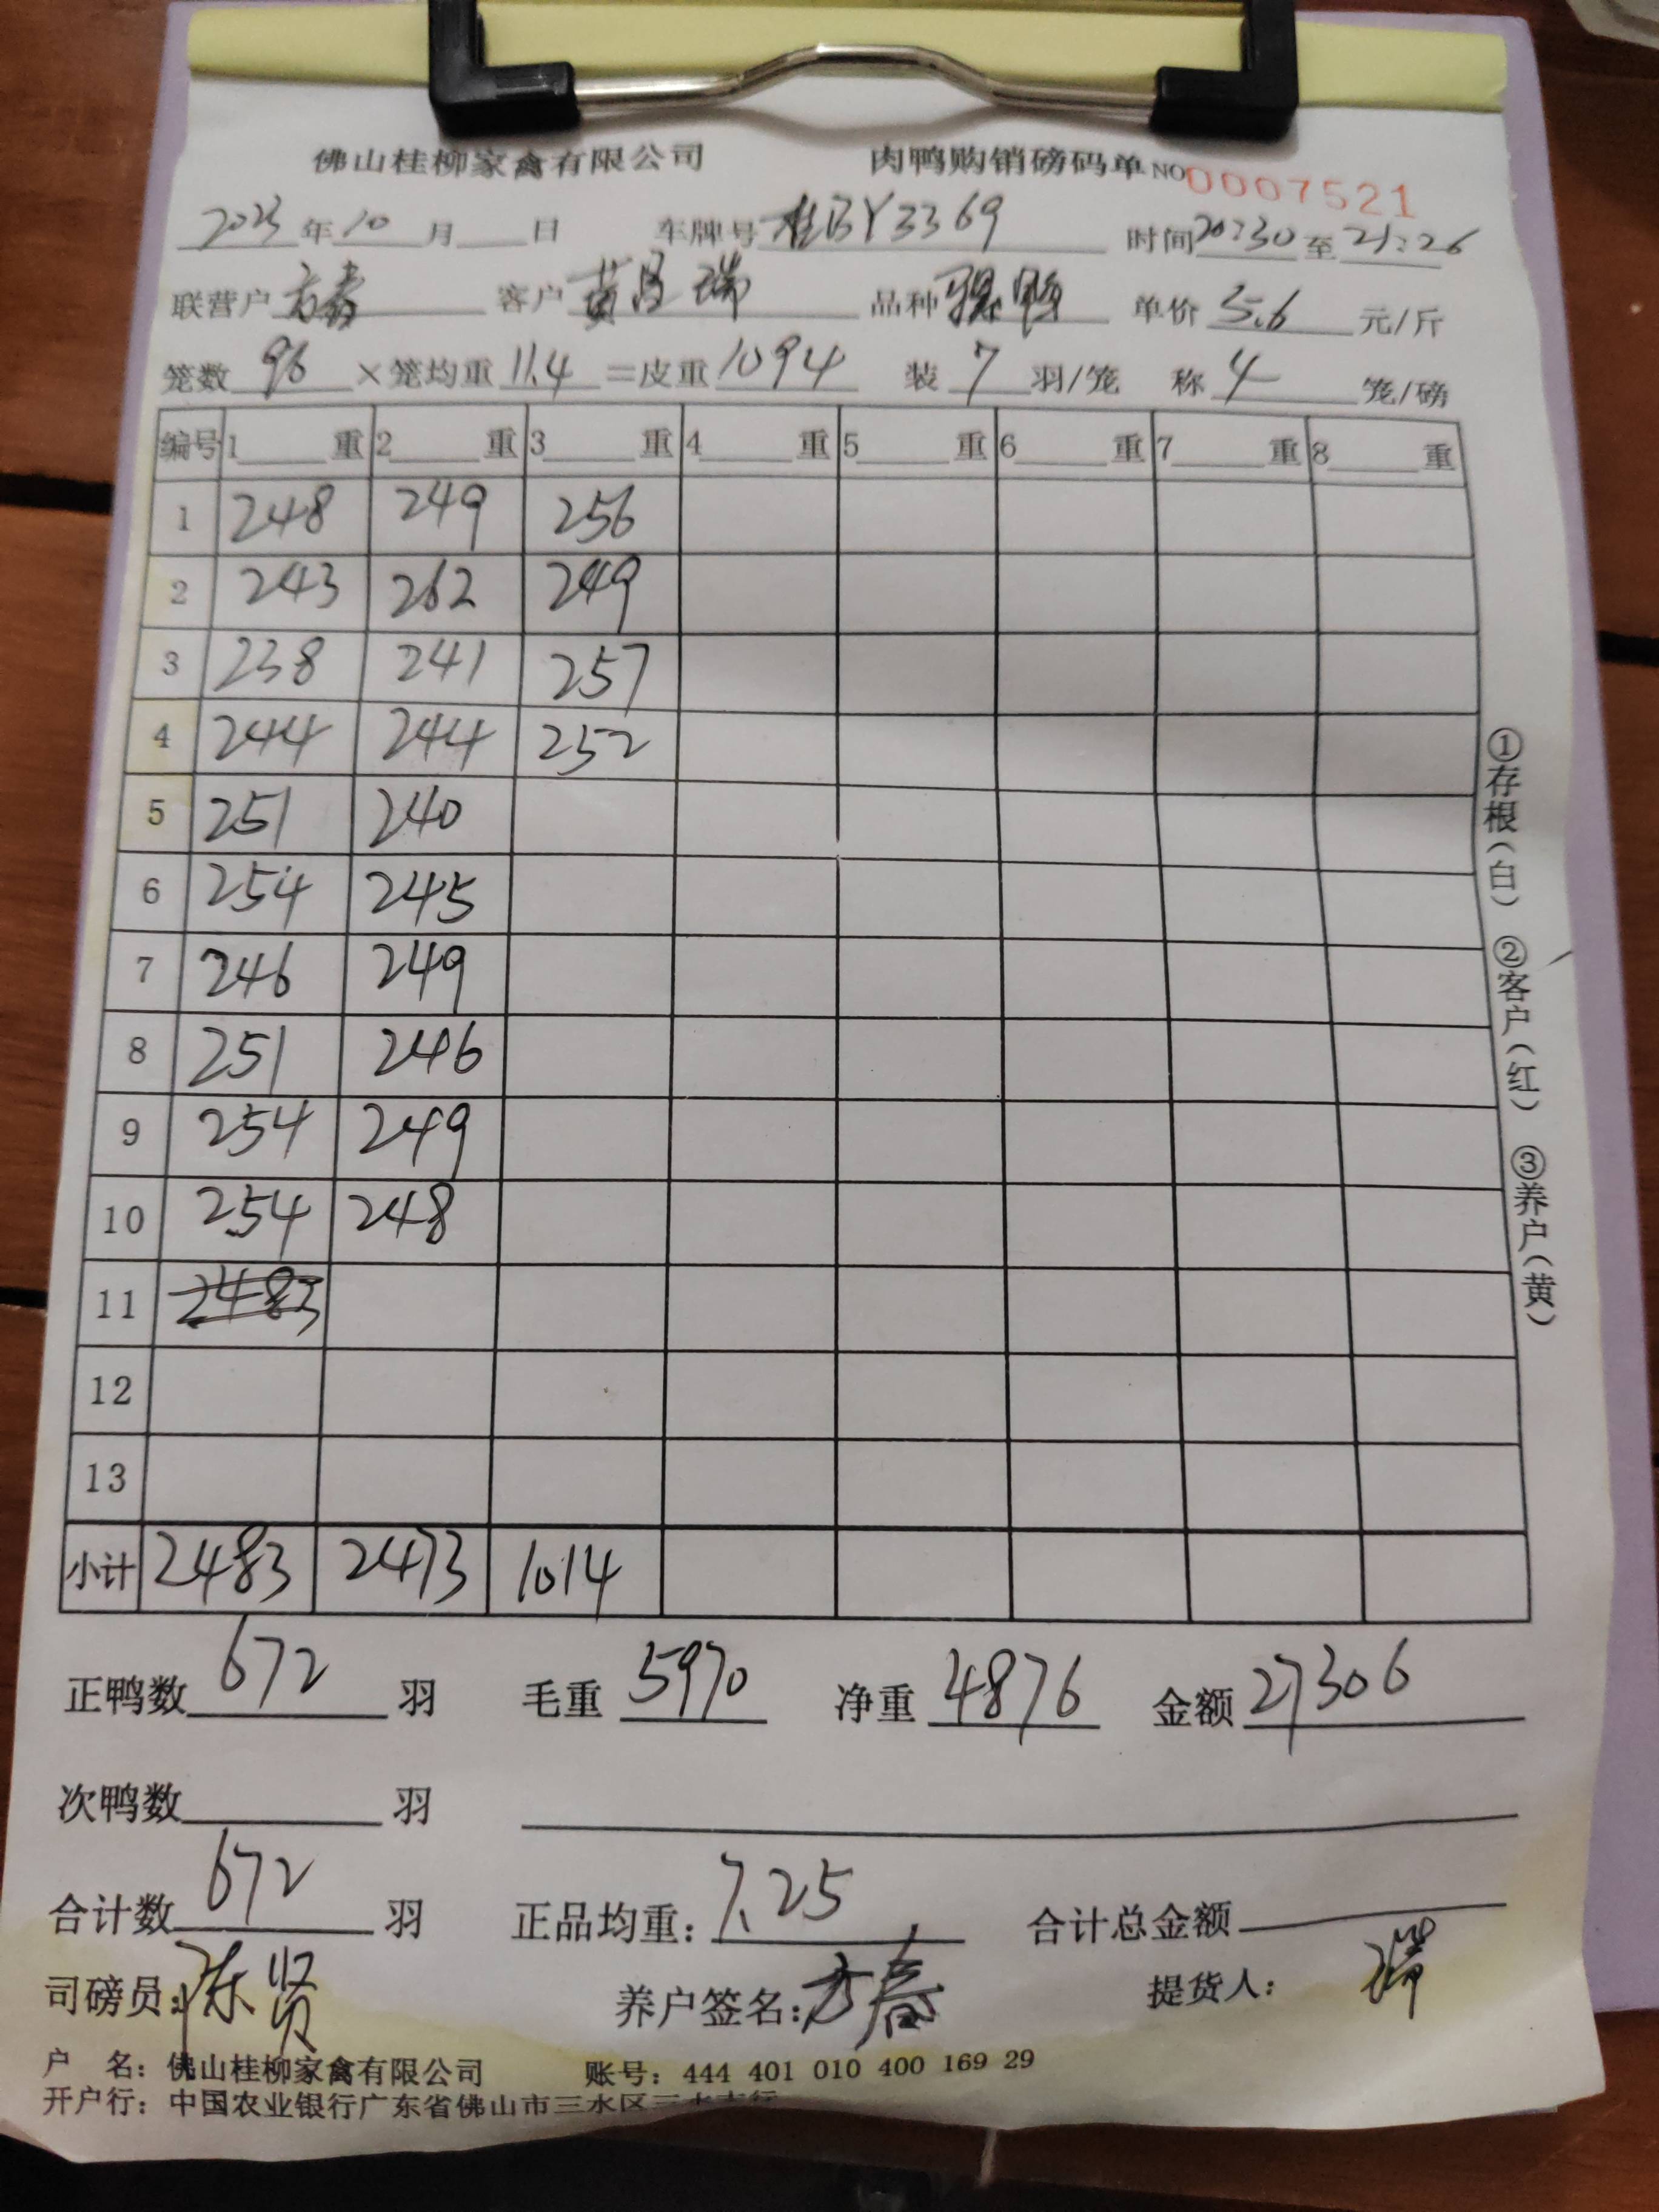 佛山桂柳家禽有限公司 肉鸭购销磅码单 NO 0007521
2023年10月 日 车牌号 桂BY3369 时间 20:30 至 21:26
联营户 方春 客户 黄昌瑞 品种 鸭 单价 5.6 元/斤
笼数 96 ×笼均重 11.4 =皮重 1094 装 7 羽/笼 称 4 笼/磅
编号 1 重 2 重 3 重 4 重 5 重 6 重 7 重 8 重
1 248 249 256
2 243 262 249
3 238 241 257
4 244 244 252
5 251 240
6 254 245
7 246 249
8 251 246
9 254 249
10 254 248
11 2483
12
13
小计 2483 2473 1014
正鸭数 672 羽 毛重 5970 净重 4876 金额 27306
次鸭数 羽
合计数 672 羽 正品均重: 7.25 合计总金额
司磅员: 陈贤 养户签名: 方春 提货人: 瑞
户 名: 佛山桂柳家禽有限公司 账号: 444 401 010 400 169 29
开户行: 中国农业银行广东省佛山市三水区三水支行
①存根(白) ②客户(红) ③养户(黄)